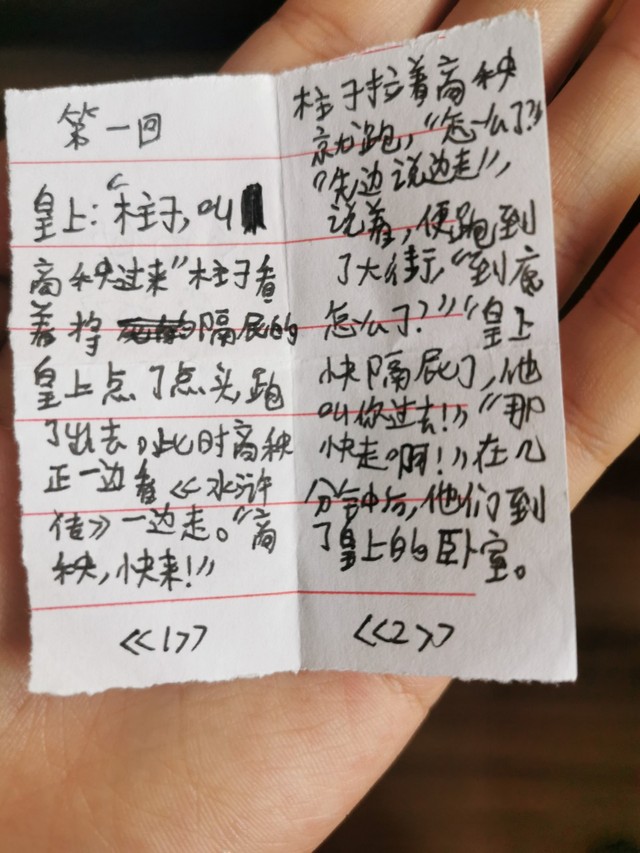 第一回
皇上:“柱子,叫
高秧过来”柱子看
着将隔屁的
皇上点了点头,跑
了出去。此时高秧
正一边看《水浒
传》一边走。“高
秧,快来!”
《1》
柱子拉着高秧
就跑,“怎么了?”
“先边说边走!”,
说着,便跑到
了大街,“到底
怎么了?”“皇上
快隔屁了,他
叫你过去!”“那
快走啊!”在几
分钟后,他们到
了皇上的卧室。
《2》